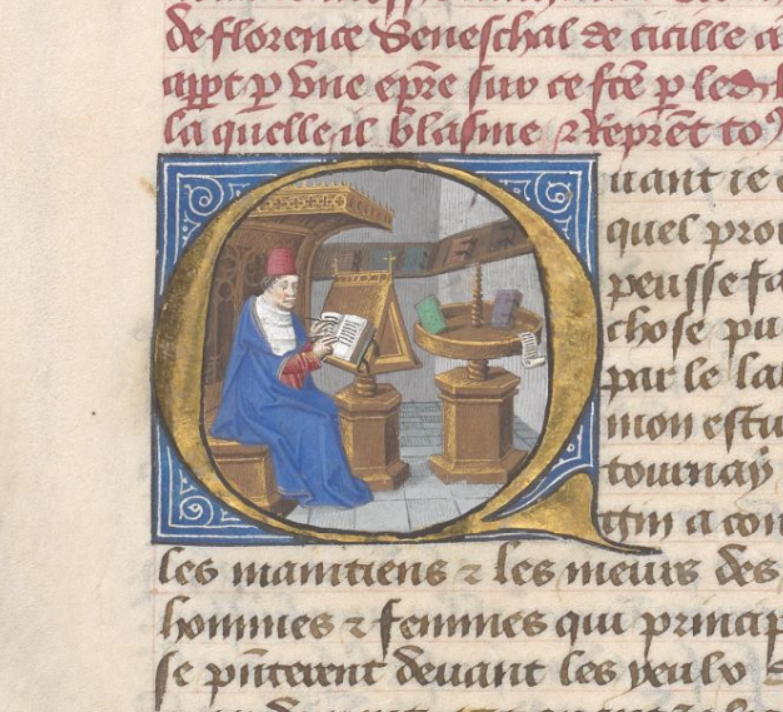 de florence Seneschal de cicille
appt p vne epre sur ce fce p le
la quelle il blasme ⁊ reprēt to
Quant ie
quel pro
peusse fa
chose pu
par le la
mon estu
tournay
gin a con
les maintiens ⁊ les meurs des
hommes ⁊ femmes qui princip
se pn̄terent deuant les yeulx